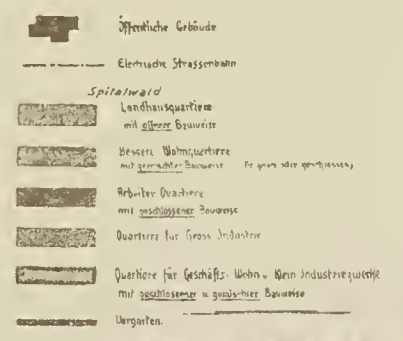 Öffentliche Gebäude
Electrische Strassenbahn
Spitalwald
Landhausquartiere
mit offener Bauweise
Bessere Wohnquartiere
mit gemischter Bauweise
Arbeiter Quartiere
mit geschlossener Bauweise
Quartiere für Gross Industrie
Quartiere für Geschäfts- Wohn u. Klein Industriezwecke
mit geschlossener u gemischter Bauweise
Vorgarten.